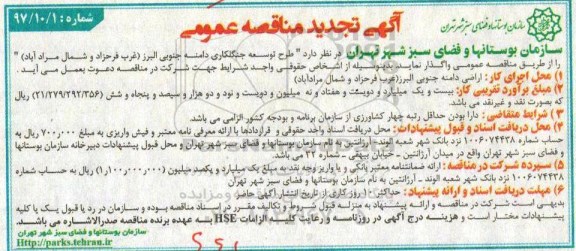 شماره : ۹۷/۱۰/۱
آگهی تجدید مناقصه عمومی
سازمان بوستانها و فضای سبز شهر تهران
سازمان بوستانها و فضای سبز شهر تهران در نظر دارد " طرح توسعه جنگلکاری دامنه جنوبی البرز (غرب فرحزاد و شمال مراد آباد) "
را از طریق مناقصه عمومی واگذار نماید. بدینوسیله از اشخاص حقوقی واجد شرایط جهت شرکت در مناقصه دعوت بعمل می آید .
۱) محل اجرای کار : اراضی دامنه جنوبی البرز(غرب فرحزاد و شمال مرادآباد)
۲) مبلغ برآورد تقریبی کار: بیست و یک میلیارد و دویست و هفتاد و نه میلیون و دویست و نود و دو هزار و سیصد و پنجاه و شش (۲۱/۲۷۹/۲۹۲/۳۵۶) ریال
که بصورت نقد و غیرنقد می باشد.
۳) شرایط متقاضی : دارا بودن حداقل رتبه چهار کشاورزی از سازمان برنامه و بودجه کشور الزامی می باشد.
۴) محل دریافت اسناد و قبول پیشنهادات : محل دریافت اسناد واحد حقوقی و قراردادها با ارائه معرفی نامه معتبر و فیش واریزی به مبلغ ۷۰۰,۰۰۰ ریال به
حساب شماره ۱۰۰۶۰۷۴۴۳۸ نزد بانک شهر شعبه الوند - آرژانتین به نام سازمان بوستانها و فضای سبز شهر تهران و محل قبول پیشنهادات دبیرخانه سازمان بوستانها
و فضای سبز شهر تهران واقع در میدان آرژانتین - خیابان بیهقی - شماره ۳۲ می باشد.
۵) سپرده شرکت در مناقصه : ارائه ضمانتنامه معتبر بانکی و یا واریز وجه نقد به مبلغ یک میلیارد و یکصد میلیون (۱,۱۰۰,۰۰۰,۰۰۰) ریال به حساب شماره
۱۰۰۶۰۷۴۴۳۸ نزد بانک شهر شعبه الوند - آرژانتین به نام سازمان بوستانها و فضای سبز شهر تهران
۶) مهلت دریافت اسناد و ارائه پیشنهاد : حداکثر ۱۰ روز کاری از تاریخ انتشار آگهی حاضر
بدیهی است شرکت در مناقصه و ارائه پیشنهاد به منزله قبول شروط و تکالیف مقرر در اسناد مناقصه بوده و سازمان در رد یا قبول یک یا کلیه
پیشنهادات مختار است و هزینه درج آگهی در روزنامه و رعایت کلیه الزامات HSE به عهده برنده مناقصه صدرالاشاره می باشد.
سازمان بوستانها و فضای سبز شهر تهران
Http://parks.tehran.ir